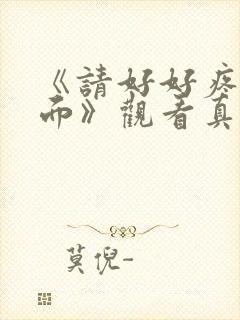 《請好好疼
而》觀看真
莫倪-